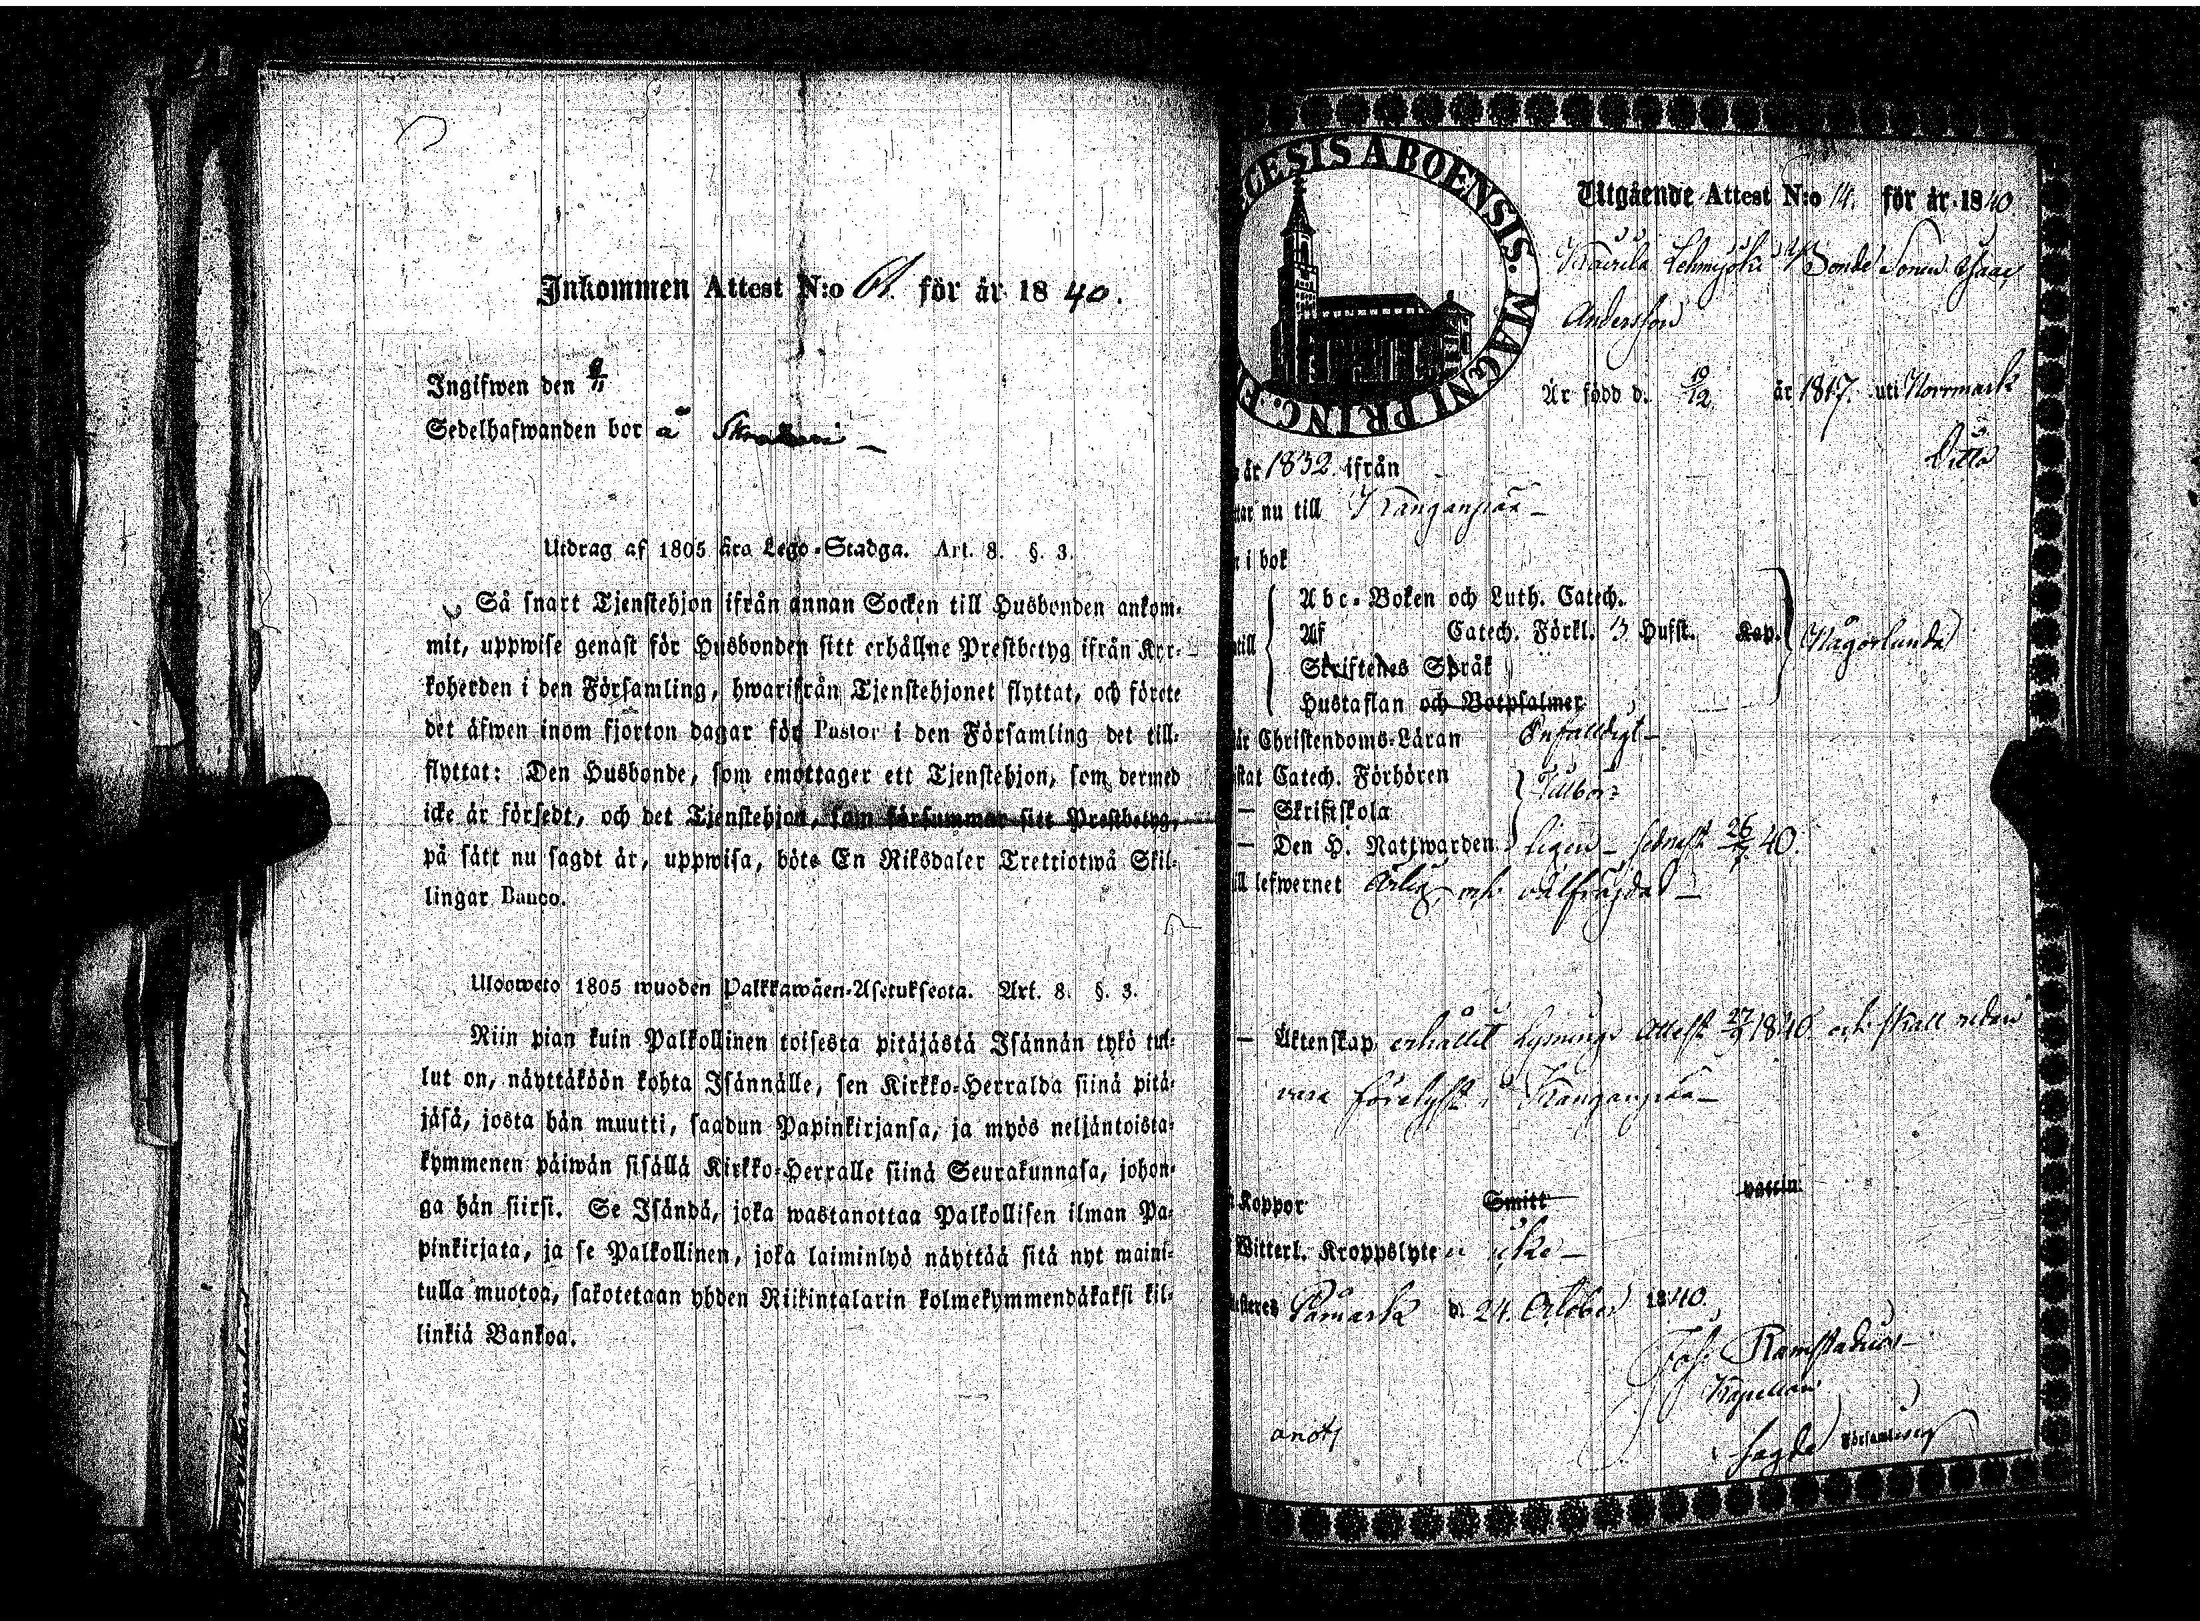 Inkommen Attest N:o 61. för år 1840.
Ingifwen den 9/11
Sedelhafwanden bor å
Utdrag af 1805 åra Lego-Stadga. Art. 8. §. 3.
Så snart Tjenstehjon ifrån annan Socken till Husbonden ankom-
mit, uppwise genast för Husbonden sitt erhållne Prestbetyg ifrån Kyr-
koherden i den Församling, hwarifrån Tjenstehjonet flyttat, och förete
det äfwen inom fjorton dagar för Pastor i den Församling det till-
flyttat: Den Husbonde, som emottager ett Tjenstehjon, som dermed
icke är försedt, och det Tjenstehjon, som försummar sitt Prestbetyg,
på sätt nu sagdt är, uppwisa, böte En Riksdaler Trettiotwå Skil-
lingar Banco.
Ulosweto 1805 wuoden Palkkawäen-Asetuksesta. Art. 8. §. 3.
Niin pian kuin Palkollinen toisesta pitäjästä Isännän tykö tul-
lut on, näyttäköön kohta Isännälle, sen Kirkko-Herralda siinä pitä-
jäsä, josta hän muutti, saadun Papinkirjansa, ja myös neljäntoista-
kymmenen päiwän sisällä Kirkko-Herralle siinä Seurakunnasa, johon-
ga hän siirsi. Se Isändä, joka wastanottaa Palkollisen ilman Pa-
pinkirjata, ja se Palkollinen, joka laiminlyö näyttää sitä nyt maini-
tulla muotoa, sakotetaan yhden Riikintalarin kolmekymmendäkaksi kil-
linkiä Bankoa.
CESIS ABOENSIS. MAGNI PRINC. F
Utgående Attest N:o 14. för år 1840.
Bonde Sonen Isaac
Andersson
Är född d. 19/12 år 1817. uti Norrmark
år 1832 ifrån Ditto
nu till Kanganpää
i bok
Abc-Boken och Luth. Catech.
Af Catech. Förkl. 3 Hufst. Kap.
till Skriftenes Språk Någorlunda
Hustaflan och Botpsalmer
Christendoms-Läran Enfaldigt
Catech. Förhören Tillbör-
— Skriftskola
— Den H. Nattwarden ligen – sednast 26/7 40.
lefwernet ärlig och välfrejdad
— Äktenskap erhållit lysnings Attest 27/9 1840 och skall redan
vara förelyst i Kanganpää
Koppor Smitt vaccin.
Witterl. Kroppslyte icke
Påmark d. 24. October 1840.
Joh. Ramstadius
Kapellan
anotl i sagde Församling